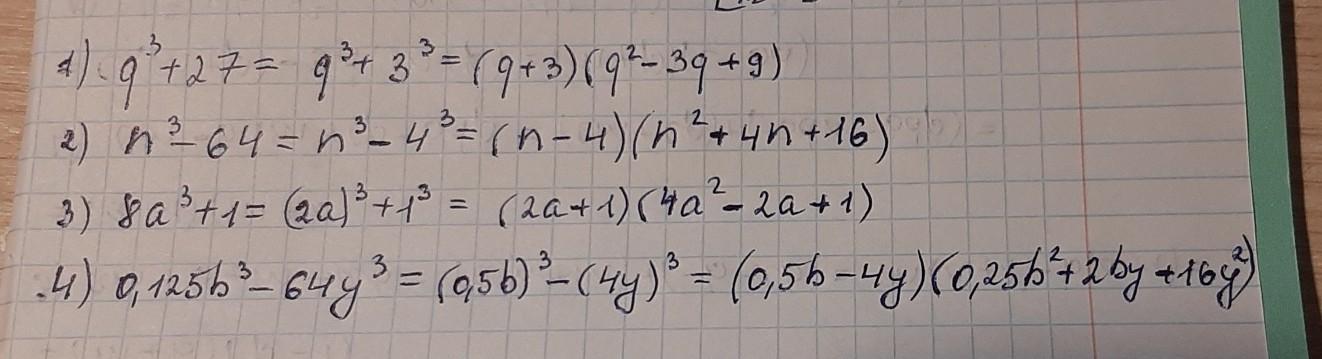 1) q³+27 = q³+3³ = (q+3)(q²-3q+9)
2) n³-64 = n³-4³ = (n-4)(n²+4n+16)
3) 8a³+1 = (2a)³+1³ = (2a+1)(4a²-2a+1)
4) 0,125b³-64y³ = (0,5b)³-(4y)³ = (0,5b-4y)(0,25b²+2by+16y²)